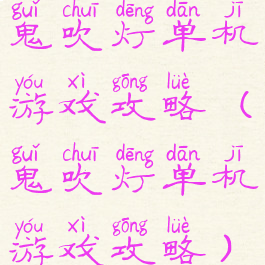 guǐ chuī dēng dān jī
鬼吹灯单机
yóu xì gōng lüè
游戏攻略（
guǐ chuī dēng dān jī
鬼吹灯单机
yóu xì gōng lüè
游戏攻略）